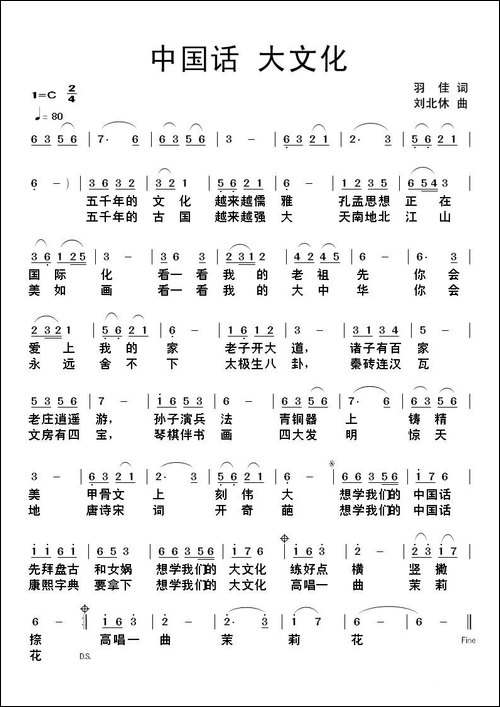 中国话 大文化
羽 佳 词
1=C 2/4
刘北休 曲
♩= 80
6 3 5 6 | 7· 6 | 2 3 5 6 | 3 - | 6 3 2 1 | 5 6 2 1 | 6 - |
6 - ) | 3 6 3 2 | 3 2 1 | 5 6 2 1 | 3 - | 1 2 3 5 | 6 5 4 3 |
五千年的 文 化 越来越儒 雅 孔孟思想 正 在
五千年的 古 国 越来越强 大 天南地北 江 山
3 6 1 2 5 | 3 - | 6· 3 | 2 3 1 2 | 3 2 4 3 | 6 - | 6· 3 |
国 际 化 看一看 我 的 老 祖 先 你 会
美 如 画 看一看 我 的 大 中 华 你 会
2 3 2 1 | 5 6 2 1 | 6 - | 1 6 1 2 | 3 - | 3 1 3 4 | 5 - |
爱 上 我 的 家 老子开大 道, 诸子有百 家
永 远 舍 不 下 太极生八 卦, 秦砖连汉 瓦
6 3 5 6 | 2· 3 | 1 6 5 6 | 3 - | 6 3 5 6 | 7· 6 | 2 3 5 6 |
老庄逍遥 游, 孙子演兵 法 青铜器 上 铸 精
文房有四 宝, 琴棋伴书 画 四大发 明 惊 天
3 - | 6 3 2 1 | 5 6 2 1 | 6 - | 6 6 3 5 6 | 1 7 6 |
美 甲骨文 上 刻 伟 大 想学我们的 中国话
地 唐诗宋 词 开 奇 葩 想学我们的 中国话
1 1 6 1 | 5 6 3 | 6 6 3 5 6 | 1 7 6 | 6 3 2 1 | 3 - | 2 3 1 7 |
先拜盘古 和女娲 想学我们的 大文化 练好点 横 竖 撇
康熙字典 要拿下 想学我们的 大文化 高唱一 曲 茉 莉
6 - | 6 3 2 1 | 3 - | 2· 3 | 1 7 | 6 - | 6 - ‖
捺 高唱一 曲 茉 莉 花 Fine
花 D.S.